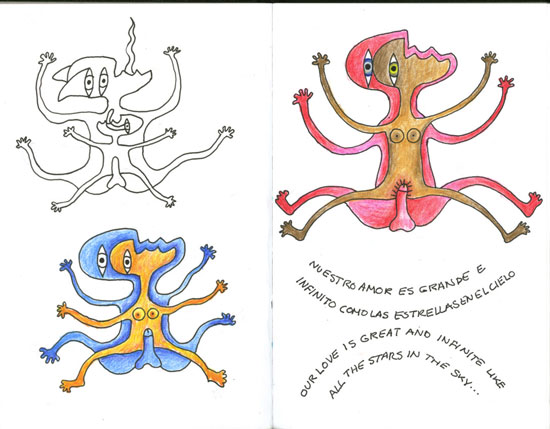 NUESTRO AMOR ES GRANDE E
INFINITO COMO LAS ESTRELLAS EN EL CIELO
OUR LOVE IS GREAT AND INFINITE LIKE
ALL THE STARS IN THE SKY...